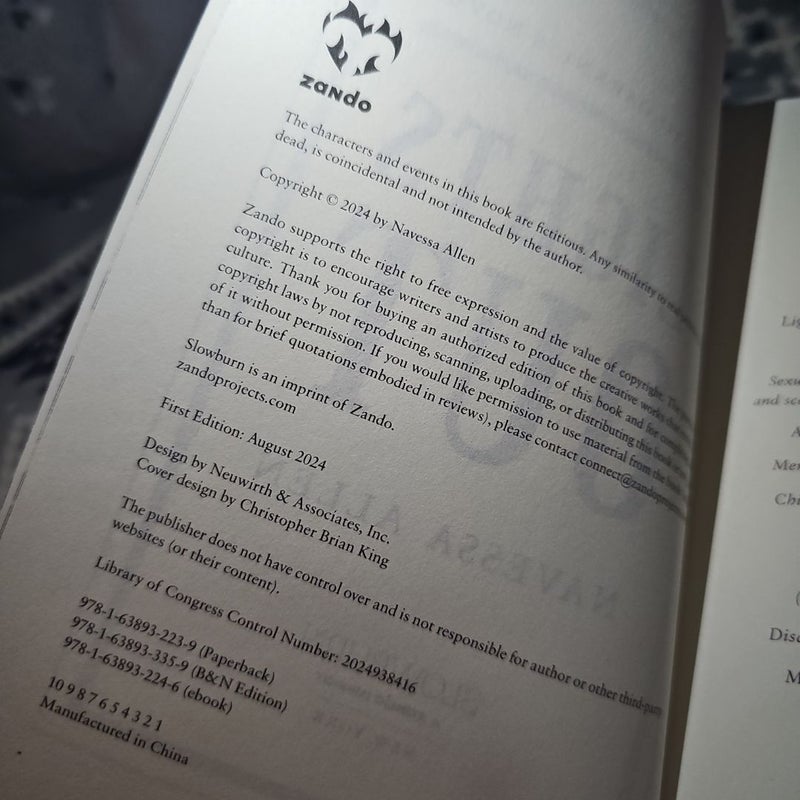 zando
The characters and events in this book are fictitious. Any similarity to real
dead, is coincidental and not intended by the author.
Copyright © 2024 by Navessa Allen
Zando supports the right to free expression and the value of copyright. The
copyright is to encourage writers and artists to produce the creative works
culture. Thank you for buying an authorized edition of this book and for
copyright laws by not reproducing, scanning, uploading, or distributing this book
of it without permission. If you would like permission to use material from the
than for brief quotations embodied in reviews), please contact connect@zandoprojects
Slowburn is an imprint of Zando.
zandoprojects.com
First Edition: August 2024
Design by Neuwirth & Associates, Inc.
Cover design by Christopher Brian King
The publisher does not have control over and is not responsible for author or other third-party
websites (or their content).
Library of Congress Control Number: 2024938416
978-1-63893-223-9 (Paperback)
978-1-63893-335-9 (B&N Edition)
978-1-63893-224-6 (ebook)
10 9 8 7 6 5 4 3 2 1
Manufactured in China
NAVESSA ALLEN
and